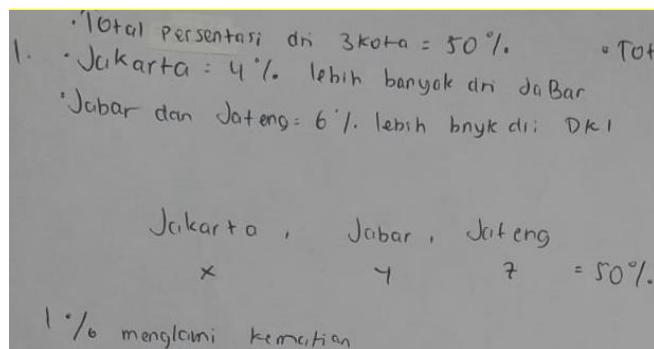 • Total persentasi dri 3kota = 50%. • Tot
1. • Jakarta = 4% lebih banyak dri JaBar
• Jabar dan Jateng = 6%. lebih bnyk dri DKI
Jakarta, Jabar, Jateng
x y z = 50%.
1% menglami kematian